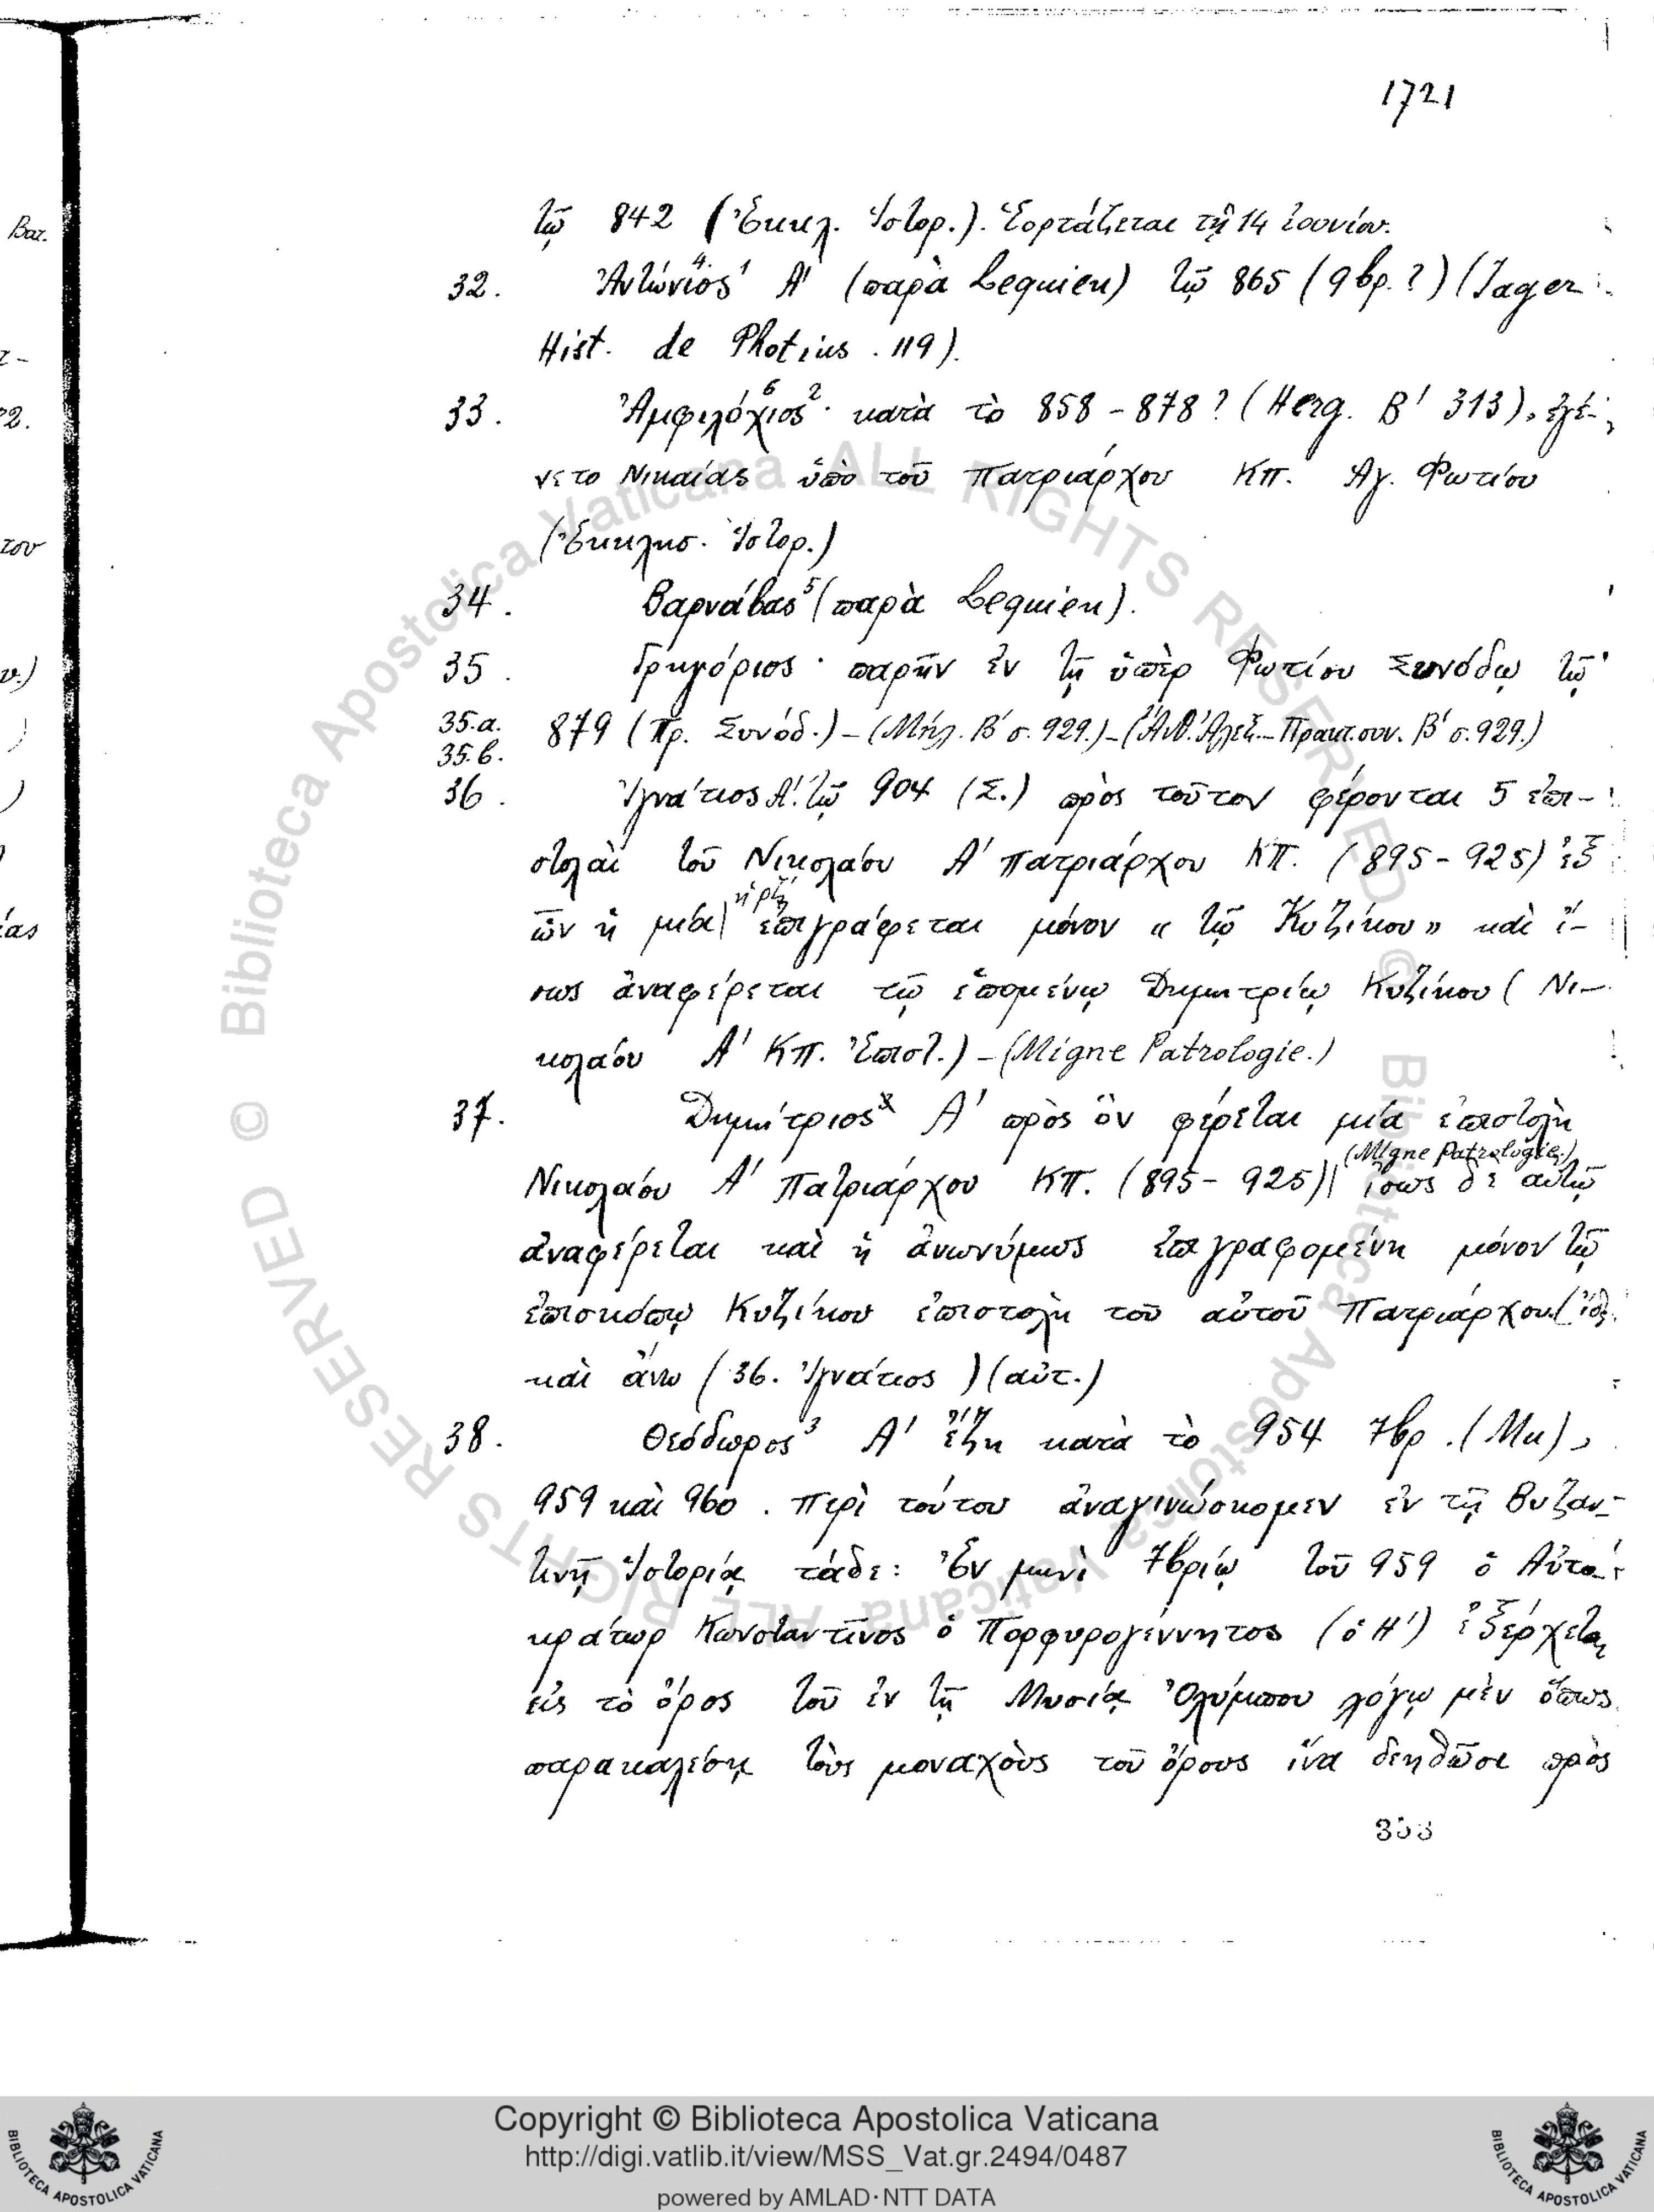 1721
τῷ 842 (Ἐκκλ. Ἱστορ.). Ἑορτάζεται τῇ 14 Ἰουνίου.
32. Ἀντώνιος⁴ ¹ Α' (παρὰ Lequien) τῷ 865 (9βρ. ?) (Jager
Hist. de Photius. 119).
33. Ἀμφιλόχιος⁶ ². κατὰ τὸ 858 - 878? (Herg. Β' 313), ἐγέ-
νετο Νικαίας ὑπὸ τοῦ Πατριάρχου ΚΠ. Ἁγ. Φωτίου
(Ἐκκλησ. Ἱστορ.)
34. Βαρνάβας⁵ (παρὰ Lequien).
35. Γρηγόριος· παρῆν ἐν τῇ ὑπὲρ Φωτίου Συνόδῳ τῷ
35.α. 879 (Πρ. Συνόδ.) - (Μήλ. Β' σ. 929.) - (Ἀνθ. Ἀλεξ. Πρακτ. συν. Β' σ. 929.)
35.β.
36. Ἰγνάτιος Α'. τῷ 904 (Σ.) πρὸς τοῦτον φέρονται 5 ἐπι-
στολαὶ τοῦ Νικολάου Α' Πατριάρχου ΚΠ. (895 - 925) ἐξ
ὧν ἡ μία ἐπιγράφεται μόνον « τῷ Κυζίκου » καὶ ἴ-
σως ἀναφέρεται τῷ ἑπομένῳ Δημητρίῳ Κυζίκου (Νι-
κολάου Α' ΚΠ. Ἐπιστ.) - (Migne Patrologie.)
37. Δημήτριος Α' πρὸς ὃν φέρεται μία ἐπιστολὴ
(Migne Patrologie.)
Νικολάου Α' Πατριάρχου ΚΠ. (895 - 925) ἴσως δὲ αὐτῷ
ἀναφέρεται καὶ ἡ ἀνωνύμως ἐπιγραφομένη μόνον τῷ
ἐπισκόπῳ Κυζίκου ἐπιστολὴ τοῦ αὐτοῦ Πατριάρχου. (ἰδ.
καὶ ἄνω (36. Ἰγνάτιος) (αὐτ.)
38. Θεόδωρος³ Α' ἔζη κατὰ τὸ 954 7βρ. (Μu),
959 καὶ 960. Περὶ τούτου ἀναγινώσκομεν ἐν τῇ Βυζαν-
τινῇ Ἱστορίᾳ τάδε: Ἐν μηνὶ 7βρίῳ τοῦ 959 ὁ Αὐτο-
κράτωρ Κωνσταντῖνος ὁ Πορφυρογέννητος (ὁ Η') ἐξέρχεται
εἰς τὸ ὄρος τοῦ ἐν τῇ Μυσίᾳ Ὀλύμπου λόγῳ μὲν ὅπως
παρακαλέσῃ τοὺς μοναχοὺς τοῦ ὄρους ἵνα δεηθῶσι πρὸς
Copyright © Biblioteca Apostolica Vaticana
http://digi.vatlib.it/view/MSS_Vat.gr.2494/0487
powered by AMLAD·NTT DATA